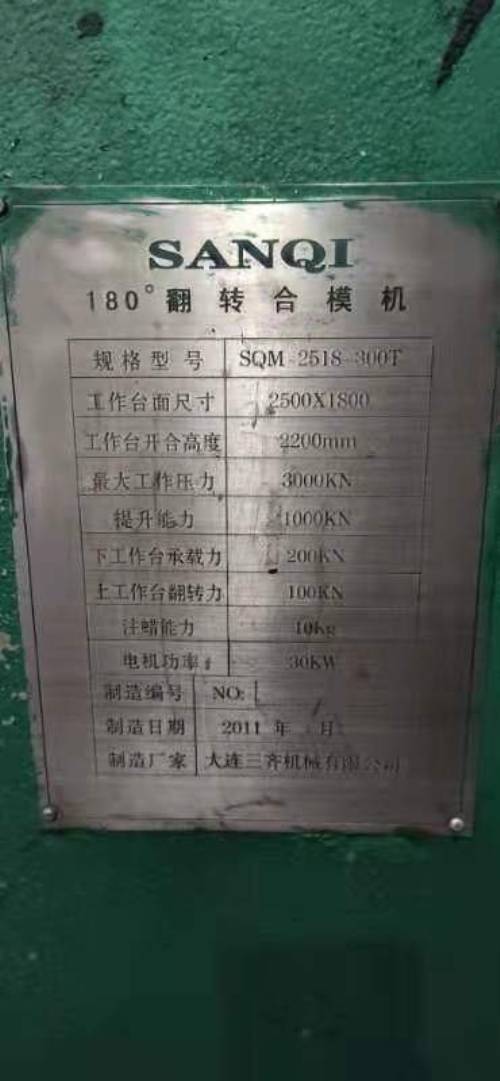 SANQI
180°翻转合模机
规格型号 SQM-2518-300T
工作台面尺寸 2500X1800
工作台开合高度 2200mm
最大工作压力 3000KN
提升能力 1000KN
下工作台承载力 200KN
上工作台翻转力 100KN
注蜡能力 10Kg
电机功率 30KW
制造编号 NO:
制造日期 2011 年 月
制造厂家 大连三齐机械有限公司